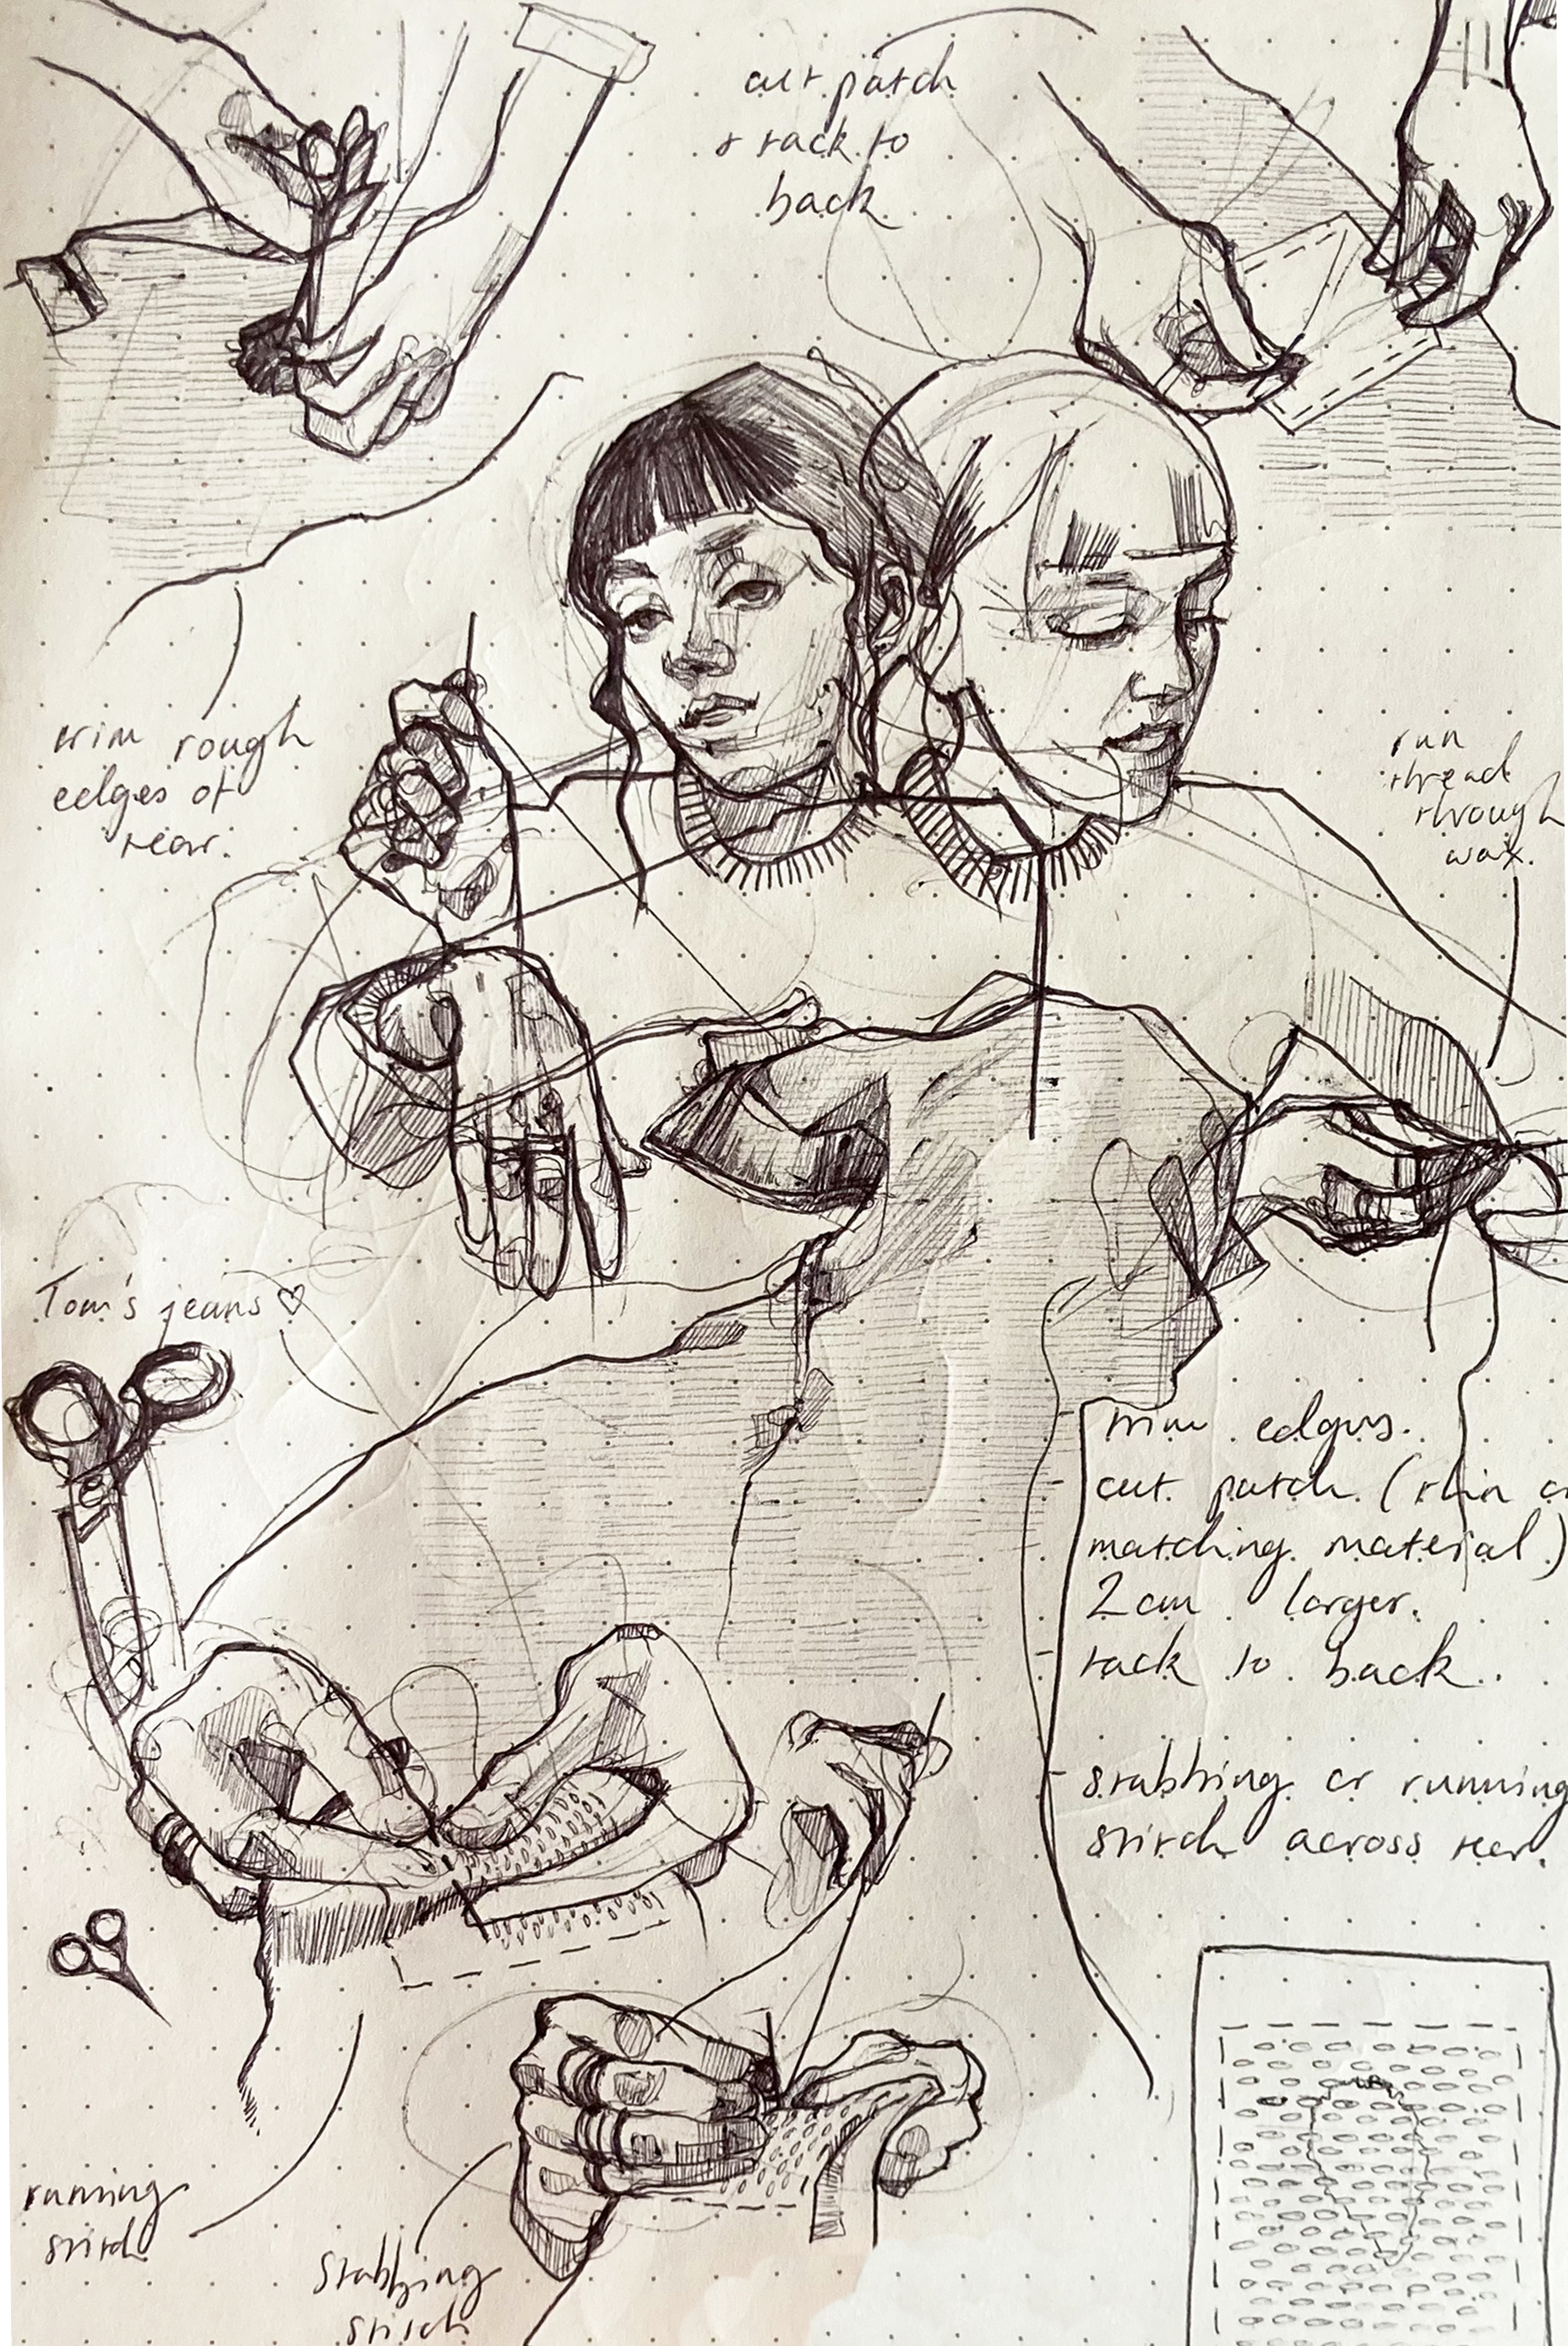 cut patch
& tack to
back
trim rough
edges of
tear.
run
thread
through
wax.
Tom's jeans ♡
trim edges.
cut patch (thin or
matching material)
2cm larger.
tack to back.
stabbing or running
stitch across tear.
running
stitch
Stabbing
stitch